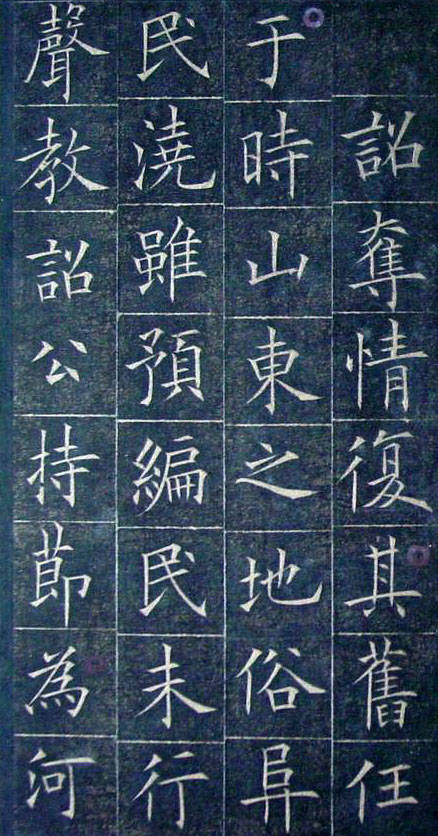 詔奪情復其舊任
于時山東之地俗阜
民澆雖預編民未行
聲教詔公持節為河